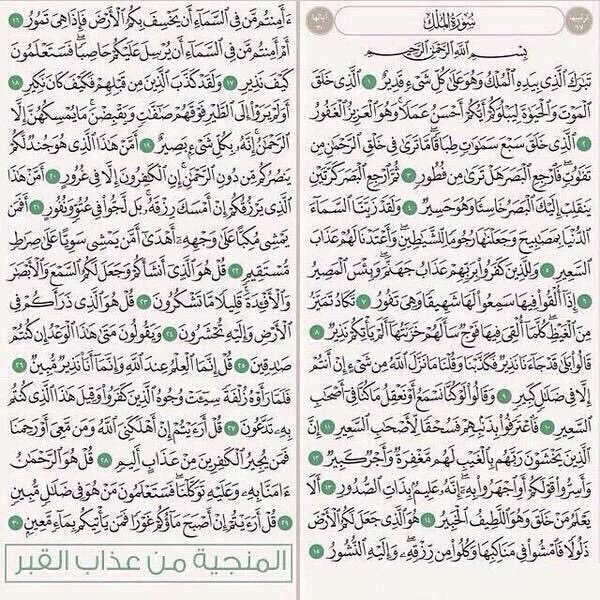 ترتيبها ٦٧
سُورَةُ المُلْكِ
آياتها ٣٠
بِسْمِ اللَّهِ الرَّحْمَٰنِ الرَّحِيمِ
تَبَٰرَكَ ٱلَّذِي بِيَدِهِ ٱلْمُلْكُ وَهُوَ عَلَىٰ كُلِّ شَيْءٍ قَدِيرٌ ١ ٱلَّذِي خَلَقَ
ٱلْمَوْتَ وَٱلْحَيَوٰةَ لِيَبْلُوَكُمْ أَيُّكُمْ أَحْسَنُ عَمَلًا وَهُوَ ٱلْعَزِيزُ ٱلْغَفُورُ
٢ ٱلَّذِي خَلَقَ سَبْعَ سَمَٰوَٰتٍ طِبَاقًا مَّا تَرَىٰ فِي خَلْقِ ٱلرَّحْمَٰنِ مِن
تَفَٰوُتٍ فَٱرْجِعِ ٱلْبَصَرَ هَلْ تَرَىٰ مِن فُطُورٍ ٣ ثُمَّ ٱرْجِعِ ٱلْبَصَرَ كَرَّتَيْنِ
يَنقَلِبْ إِلَيْكَ ٱلْبَصَرُ خَاسِئًا وَهُوَ حَسِيرٌ ٤ وَلَقَدْ زَيَّنَّا ٱلسَّمَآءَ
ٱلدُّنْيَا بِمَصَٰبِيحَ وَجَعَلْنَٰهَا رُجُومًا لِّلشَّيَٰطِينِ وَأَعْتَدْنَا لَهُمْ عَذَابَ
ٱلسَّعِيرِ ٥ وَلِلَّذِينَ كَفَرُوا۟ بِرَبِّهِمْ عَذَابُ جَهَنَّمَ وَبِئْسَ ٱلْمَصِيرُ
٦ إِذَآ أُلْقُوا۟ فِيهَا سَمِعُوا۟ لَهَا شَهِيقًا وَهِيَ تَفُورُ ٧ تَكَادُ تَمَيَّزُ
مِنَ ٱلْغَيْظِ كُلَّمَآ أُلْقِيَ فِيهَا فَوْجٌ سَأَلَهُمْ خَزَنَتُهَآ أَلَمْ يَأْتِكُمْ نَذِيرٌ ٨
قَالُوا۟ بَلَىٰ قَدْ جَآءَنَا نَذِيرٌ فَكَذَّبْنَا وَقُلْنَا مَا نَزَّلَ ٱللَّهُ مِن شَيْءٍ إِنْ أَنتُمْ
إِلَّا فِي ضَلَٰلٍ كَبِيرٍ ٩ وَقَالُوا۟ لَوْ كُنَّا نَسْمَعُ أَوْ نَعْقِلُ مَا كُنَّا فِيٓ أَصْحَٰبِ
ٱلسَّعِيرِ ١٠ فَٱعْتَرَفُوا۟ بِذَنۢبِهِمْ فَسُحْقًا لِّأَصْحَٰبِ ٱلسَّعِيرِ ١١ إِنَّ
ٱلَّذِينَ يَخْشَوْنَ رَبَّهُم بِٱلْغَيْبِ لَهُم مَّغْفِرَةٌ وَأَجْرٌ كَبِيرٌ ١٢
وَأَسِرُّوا۟ قَوْلَكُمْ أَوِ ٱجْهَرُوا۟ بِهِۦٓ إِنَّهُۥ عَلِيمٌۢ بِذَاتِ ٱلصُّدُورِ ١٣ أَلَا
يَعْلَمُ مَنْ خَلَقَ وَهُوَ ٱللَّطِيفُ ٱلْخَبِيرُ ١٤ هُوَ ٱلَّذِي جَعَلَ لَكُمُ ٱلْأَرْضَ
ذَلُولًا فَٱمْشُوا۟ فِي مَنَاكِبِهَا وَكُلُوا۟ مِن رِّزْقِهِۦ وَإِلَيْهِ ٱلنُّشُورُ ١٥
ءَأَمِنتُم مَّن فِي ٱلسَّمَآءِ أَن يَخْسِفَ بِكُمُ ٱلْأَرْضَ فَإِذَا هِيَ تَمُورُ ١٦
أَمْ أَمِنتُم مَّن فِي ٱلسَّمَآءِ أَن يُرْسِلَ عَلَيْكُمْ حَاصِبًا فَسَتَعْلَمُونَ
كَيْفَ نَذِيرِ ١٧ وَلَقَدْ كَذَّبَ ٱلَّذِينَ مِن قَبْلِهِمْ فَكَيْفَ كَانَ نَكِيرِ ١٨
أَوَلَمْ يَرَوْا۟ إِلَى ٱلطَّيْرِ فَوْقَهُمْ صَٰٓفَّٰتٍ وَيَقْبِضْنَ مَا يُمْسِكُهُنَّ إِلَّا
ٱلرَّحْمَٰنُ إِنَّهُۥ بِكُلِّ شَيْءٍۭ بَصِيرٌ ١٩ أَمَّنْ هَٰذَا ٱلَّذِي هُوَ جُندٌ لَّكُمْ
يَنصُرُكُم مِّن دُونِ ٱلرَّحْمَٰنِ إِنِ ٱلْكَٰفِرُونَ إِلَّا فِي غُرُورٍ ٢٠ أَمَّنْ هَٰذَا
ٱلَّذِي يَرْزُقُكُمْ إِنْ أَمْسَكَ رِزْقَهُۥ بَل لَّجُّوا۟ فِي عُتُوٍّ وَنُفُورٍ ٢١ أَفَمَن
يَمْشِي مُكِبًّا عَلَىٰ وَجْهِهِۦٓ أَهْدَىٰٓ أَمَّن يَمْشِي سَوِيًّا عَلَىٰ صِرَٰطٍ
مُّسْتَقِيمٍ ٢٢ قُلْ هُوَ ٱلَّذِيٓ أَنشَأَكُمْ وَجَعَلَ لَكُمُ ٱلسَّمْعَ وَٱلْأَبْصَٰرَ
وَٱلْأَفْـِٔدَةَ قَلِيلًا مَّا تَشْكُرُونَ ٢٣ قُلْ هُوَ ٱلَّذِي ذَرَأَكُمْ فِي
ٱلْأَرْضِ وَإِلَيْهِ تُحْشَرُونَ ٢٤ وَيَقُولُونَ مَتَىٰ هَٰذَا ٱلْوَعْدُ إِن كُنتُمْ
صَٰدِقِينَ ٢٥ قُلْ إِنَّمَا ٱلْعِلْمُ عِندَ ٱللَّهِ وَإِنَّمَآ أَنَا۠ نَذِيرٌ مُّبِينٌ ٢٦
فَلَمَّا رَأَوْهُ زُلْفَةً سِيٓـَٔتْ وُجُوهُ ٱلَّذِينَ كَفَرُوا۟ وَقِيلَ هَٰذَا ٱلَّذِي كُنتُم
بِهِۦ تَدَّعُونَ ٢٧ قُلْ أَرَءَيْتُمْ إِنْ أَهْلَكَنِيَ ٱللَّهُ وَمَن مَّعِيَ أَوْ رَحِمَنَا
فَمَن يُجِيرُ ٱلْكَٰفِرِينَ مِنْ عَذَابٍ أَلِيمٍ ٢٨ قُلْ هُوَ ٱلرَّحْمَٰنُ
ءَامَنَّا بِهِۦ وَعَلَيْهِ تَوَكَّلْنَا فَسَتَعْلَمُونَ مَنْ هُوَ فِي ضَلَٰلٍ مُّبِينٍ
٢٩ قُلْ أَرَءَيْتُمْ إِنْ أَصْبَحَ مَآؤُكُمْ غَوْرًا فَمَن يَأْتِيكُم بِمَآءٍ مَّعِينٍۭ ٣٠
المنجية من عذاب القبر